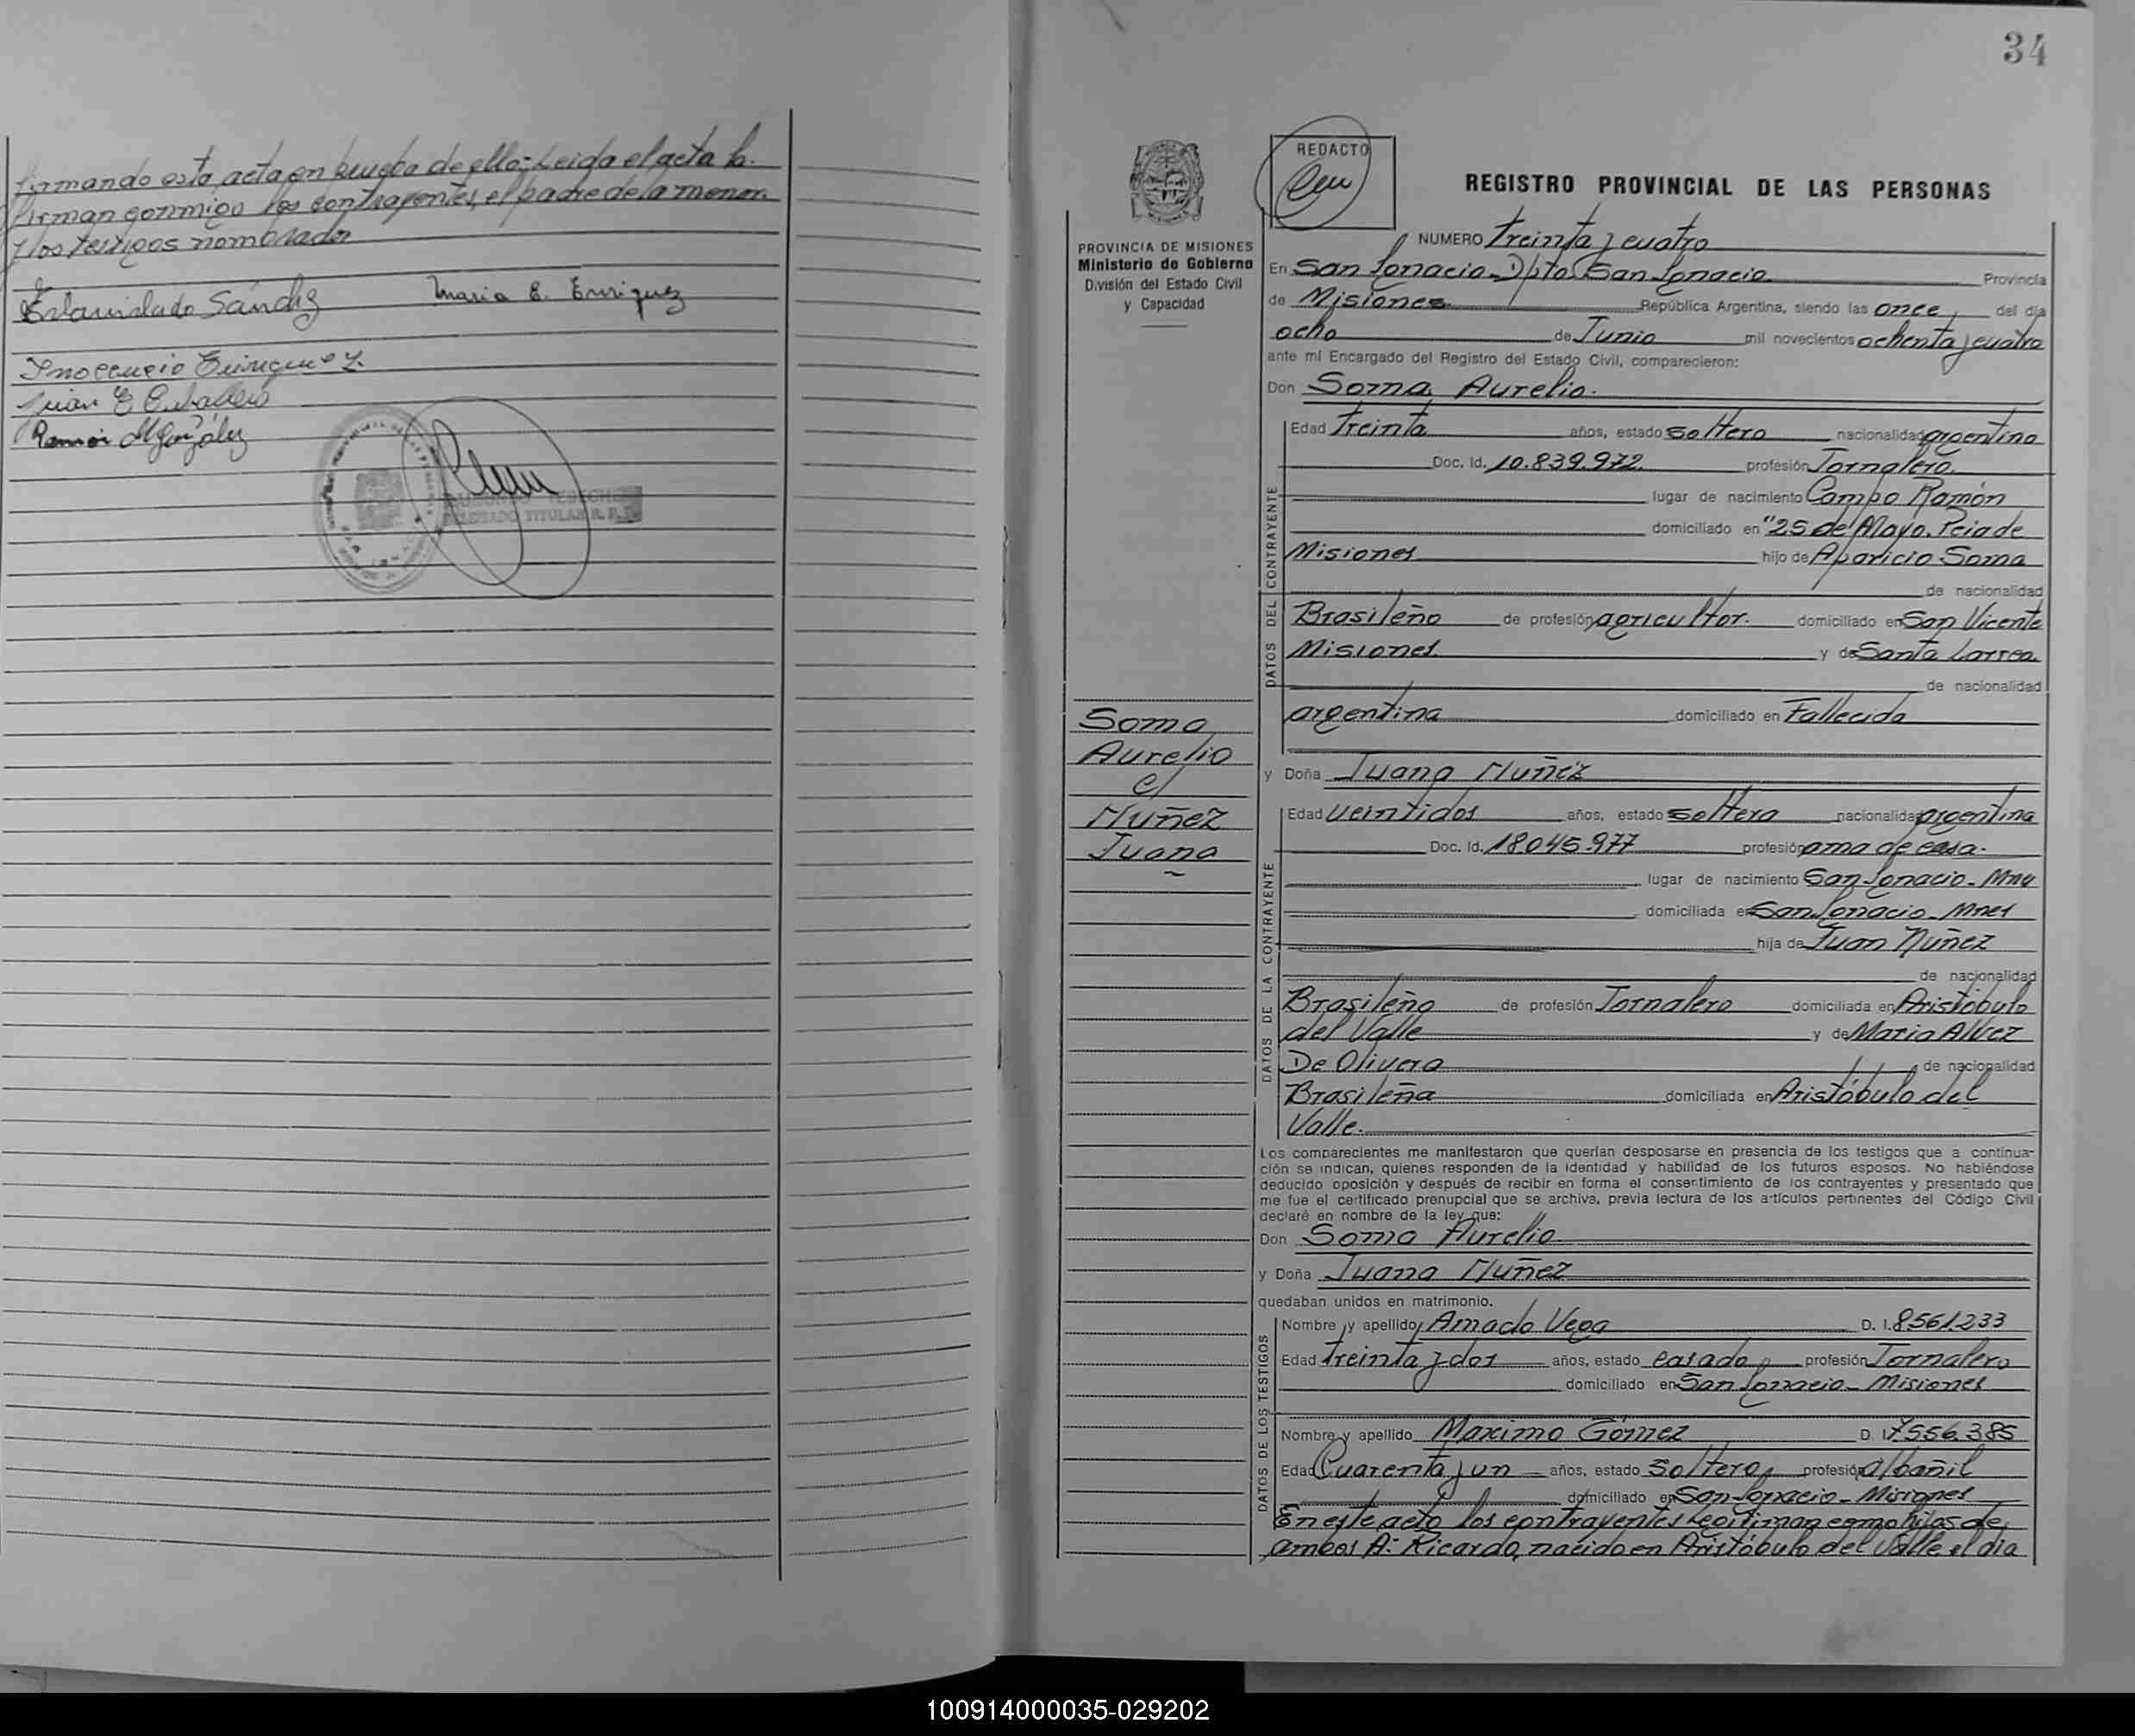 firmando esta acta en prueba de ello= Leida el acta la
firman conmigo los contrayentes, el padre de la menor
y los testigos nombrados
Estanislado Sánchez Maria E. Enriquez
Inocencio Enriquez
Juan E
Ramón González
DELEGADO TITULAR R. P.
34
REDACTO
REGISTRO PROVINCIAL DE LAS PERSONAS
PROVINCIA DE MISIONES
Ministerio de Gobierno
División del Estado Civil
y Capacidad
NUMERO Treinta y cuatro
En San Ignacio - Dpto. San Ignacio Provincia
de Misiones República Argentina, siendo las once, del día
ocho de Junio mil novecientos ochenta y cuatro
ante mí Encargado del Registro del Estado Civil, comparecieron:
Don Soma Aurelio.
DATOS DEL CONTRAYENTE
Edad Treinta años, estado soltero nacionalidad argentina
Doc. Id. 10.839.972 profesión Jornalero.
lugar de nacimiento Campo Ramón
domiciliado en "25 de Mayo. Pcia de
Misiones hijo de Aparicio Soma
de nacionalidad
Brasileño de profesión agricultor. domiciliado en San Vicente
Misiones y de Santa Larrea
de nacionalidad
argentina domiciliado en Fallecida
Soma
Aurelio
c/
Nuñez
Juana
y Doña Juana Nuñez
DATOS DE LA CONTRAYENTE
Edad Veintidos años, estado soltera nacionalidad argentina
Doc. Id. 18.045.977 profesión ama de casa.
lugar de nacimiento San Ignacio - Mnes
domiciliada en San Ignacio - Mnes
hija de Juan Nuñez
de nacionalidad
Brasileño de profesión Jornalero domiciliada en Aristóbulo
del Valle y de Maria Alvez
De Olivera de nacionalidad
Brasileña domiciliada en Aristóbulo del
Valle.
Los comparecientes me manifestaron que querían desposarse en presencia de los testigos que a continua-
ción se indican, quienes responden de la identidad y habilidad de los futuros esposos. No habiéndose
deducido oposición y después de recibir en forma el consentimiento de los contrayentes y presentado que
me fue el certificado prenupcial que se archiva, previa lectura de los artículos pertinentes del Código Civil
declaré en nombre de la ley que:
Don Soma Aurelio
y Doña Juana Nuñez
quedaban unidos en matrimonio.
DATOS DE LOS TESTIGOS
Nombre y apellido Amado Vega D. I. 8.561.233
Edad treinta y dos años, estado casado profesión Jornalero
domiciliado en San Ignacio - Misiones
Nombre y apellido Maximo Gómez D. I. 7.556.385
Edad Cuarenta y un años, estado soltero profesión albañil
domiciliado en San Ignacio - Misiones
En este acto los contrayentes legitiman como hijos de
ambos A: Ricardo, nacido en Aristóbulo del Valle el dia
100914000035-029202